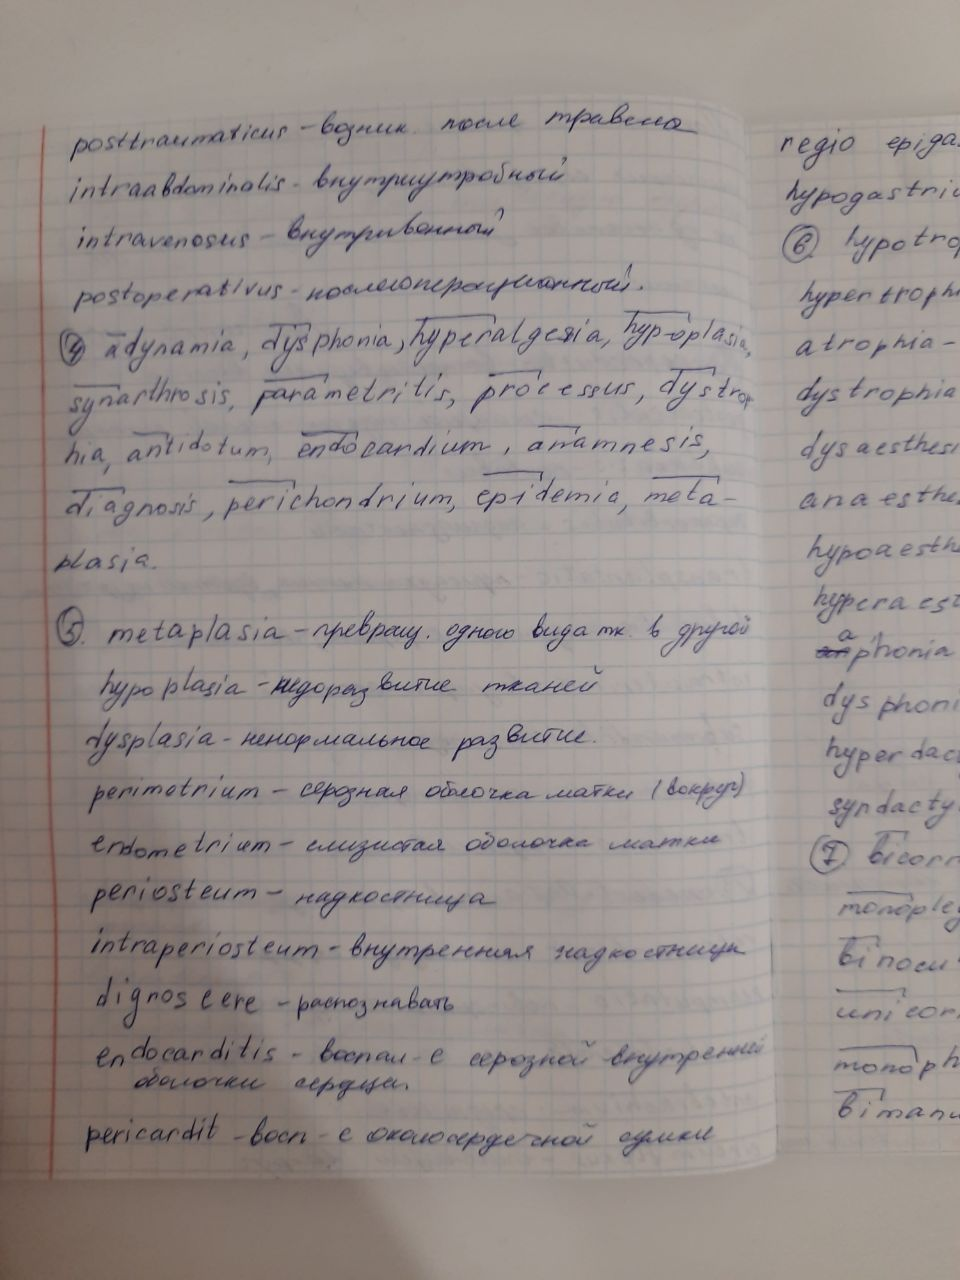 posttraumaticus - возник. после
intraabdominalis - внутриутробный
intravenosus - внутривенный
postoperativus - послеоперационный.
④ adynamia, dysphonia, hyperalgesia, hypoplasia,
synarthrosis, parametritis, processus, dystrop
hia, antidotum, endocardium, anamnesis,
diagnosis, perichondrium, epidemia, meta-
plasia.
⑤. metaplasia - превращ. одного вида тк. в другой
hypoplasia - недоразвитие тканей
dysplasia - ненормальное развитие.
perimetrium - серозная оболочка матки (вокруг)
endometrium - слизистая оболочка матки
periosteum - надкостница
intraperiosteum - внутренняя надкостница
dignoscere - распознавать
endocarditis - воспал-е серозной внутренней
оболочки сердца.
pericardit - восп-е околосердечной сумки
regio epiga
hypogastriu
⑥ hypotrop
hypertrophi
atrophia -
dystrophia
dysaesthesi
anaesthe
hypoaesthe
hyperaest
aphonia
dysphoni
hyperdac
syndacty
⑦ bicorn
monopleg
binocu
unicor
monoph
bimanu